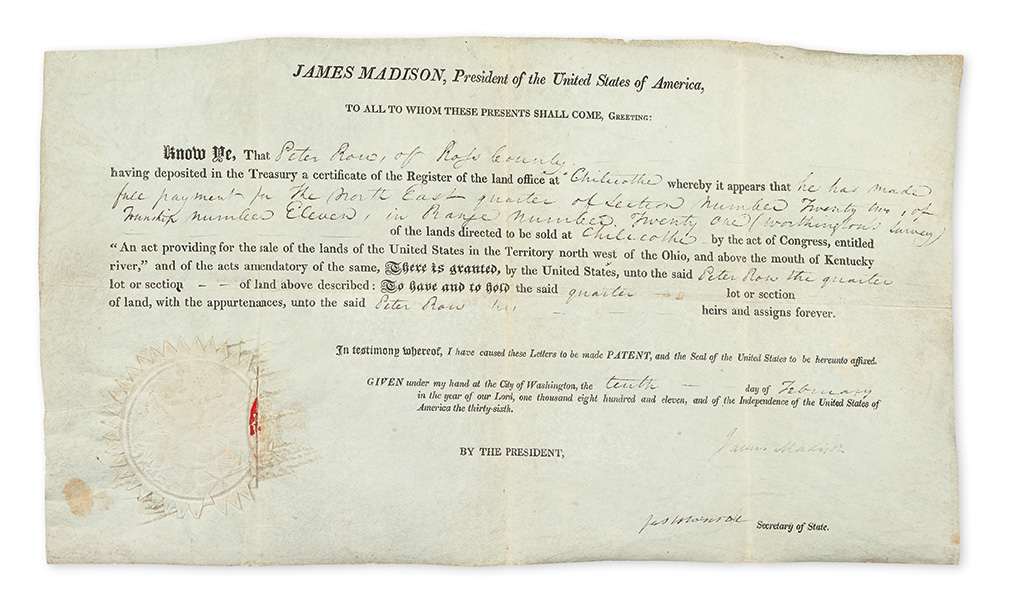 JAMES MADISON, President of the United States of America,
TO ALL TO WHOM THESE PRESENTS SHALL COME, GREETING:
Know Ye, That Peter Row, of Ross County
having deposited in the Treasury a certificate of the Register of the land office at Chilicothe whereby it appears that he has made
full payment for the North East quarter of Section number Twenty two, of
Township number Eleven, in Range number Twenty One (Worthington's Survey)
of the lands directed to be sold at Chilicothe by the act of Congress, entitled
“An act providing for the sale of the lands of the United States in the Territory north west of the Ohio, and above the mouth of Kentucky
river,” and of the acts amendatory of the same, There is granted, by the United States, unto the said Peter Row the quarter
lot or section - - of land above described: To have and to hold the said quarter lot or section
of land, with the appurtenances, unto the said Peter Row his heirs and assigns forever.
In testimony whereof, I have caused these Letters to be made PATENT, and the Seal of the United States to be hereunto affixed.
GIVEN under my hand at the City of Washington, the tenth day of February
in the year of our Lord, one thousand eight hundred and eleven, and of the Independence of the United States of
America the thirty-sixth.
James Madison
BY THE PRESIDENT,
Jas Monroe Secretary of State.